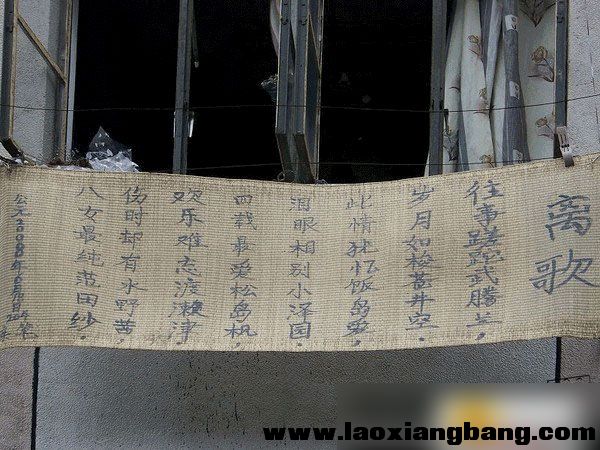 离歌
往事蹉跎武腾兰,
岁月如梭苍井空.
此情犹忆饭岛爱,
泪眼相别小泽园.
四载最爱松岛枫,
欢乐难忘渡濑津,
伤时却有水野
八女最纯范田纱,
公元2008年6月
www.laoxiangbang.com